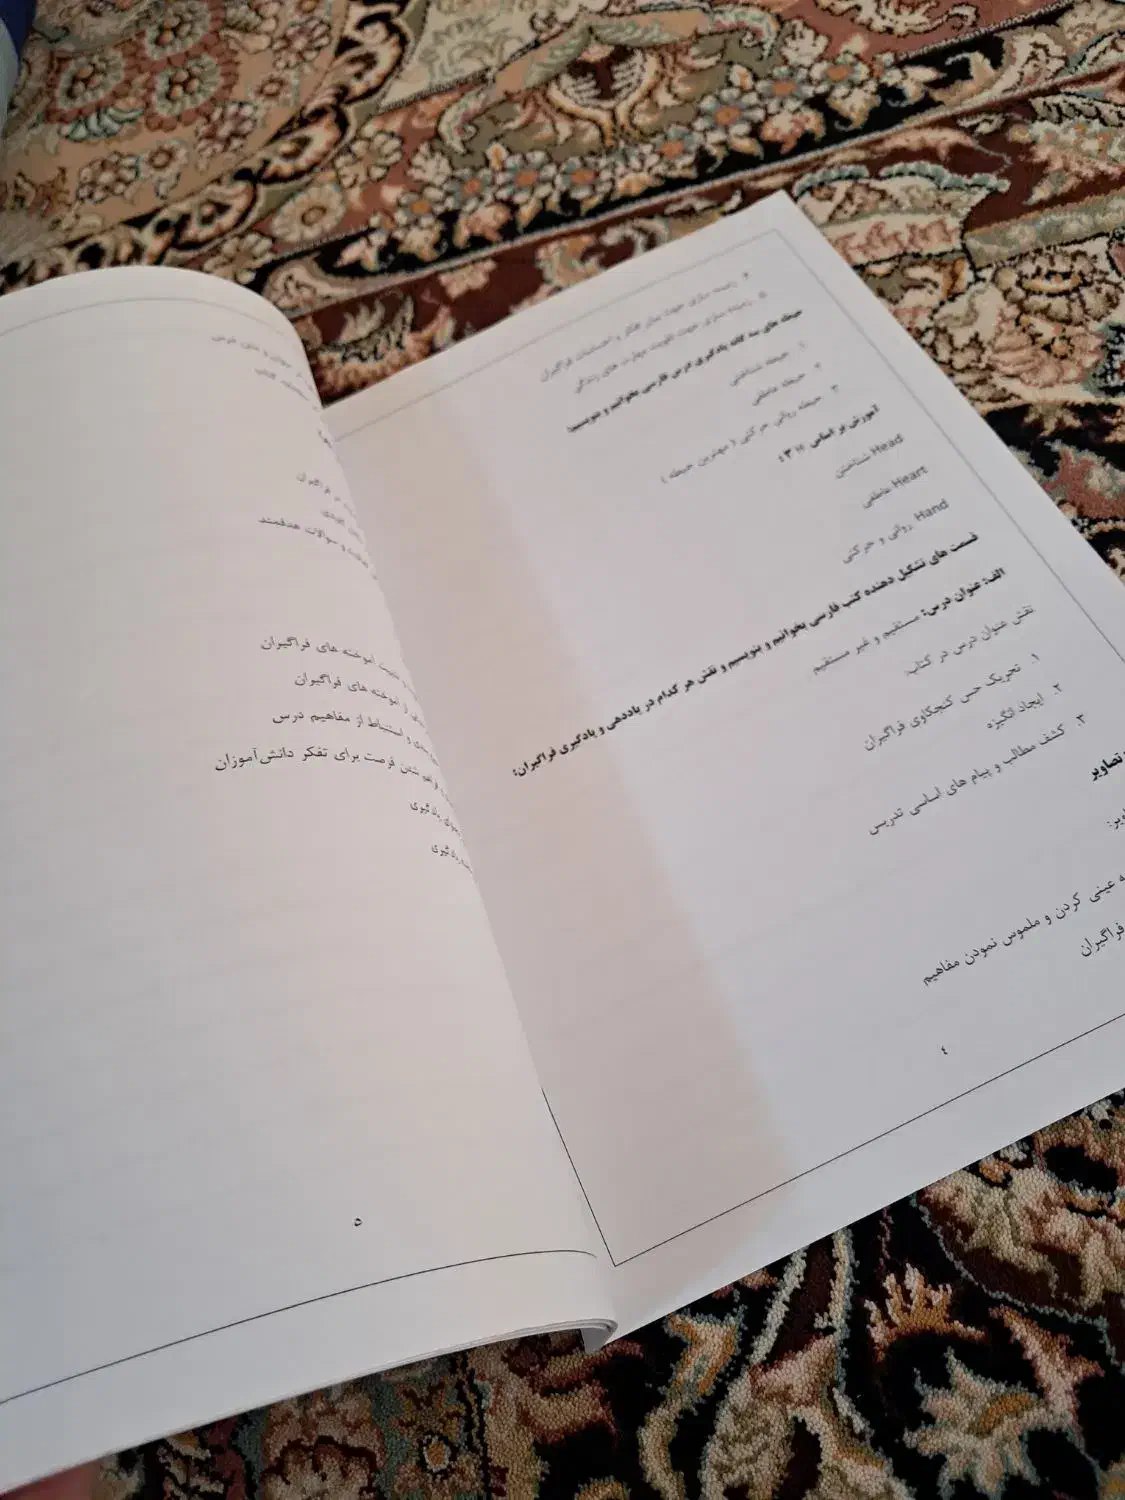 ۴. زمینه سازی جهت بیان افکار و احساسات فراگیران
۵. زمینه سازی جهت تقویت مهارت های زندگی
حیطه های سه گانه یادگیری درس فارسی بخوانیم و بنویسیم:
۱. حیطه شناختی
۲. حیطه عاطفی
۳. حیطه روانی حرکتی ( مهترین حیطه )
آموزش بر اساس ۳H :
Head شناختی
Heart عاطفی
Hand روانی و حرکتی
قسمت های تشکیل دهنده کتب فارسی بخوانیم و بنویسیم و نقش هر کدام در یاددهی و یادگیری فراگیران:
الف: عنوان درس: مستقیم و غیر مستقیم
نقش عنوان درس در کتاب:
۱. تحریک حس کنجکاوی فراگیران
۲. ایجاد انگیزه
۳. کشف مطالب و پیام های اساسی تدریس
تصاویر
عینی کردن و ملموس نمودن مفاهیم
فراگیران
٤
و متن درس
در فراگیران
و سوالات هدفمند
آموخته های فراگیران
از آموخته های فراگیران
و استنباط از مفاهیم درس
فراهم شدن فرصت برای تفکر دانش‌آموزان
یادگیری
یادگیری
٥